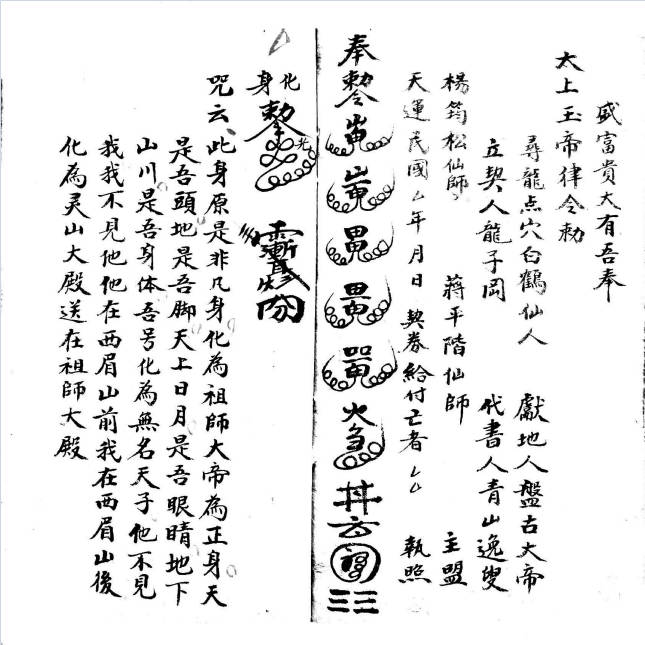 咸富貴大有吾奉
太上玉帝律令勅
尋龍点穴白鶴仙人 獻地人盤古大帝
立契人龍子岡 代書人青山逸叟
楊筠松仙師 蔣平階仙師 主盟
天運民國厶年月日 契券給付亡者厶厶 執照
奉勅令
化身
咒云此身原是非凡身化為祖師大帝為正身天
是吾頭地是吾脚天上日月是吾眼睛地下
山川是吾身体吾号化為無名天子他不見
我我不見他他在西眉山前我在西眉山後
化為灵山大殿送在祖師大殿